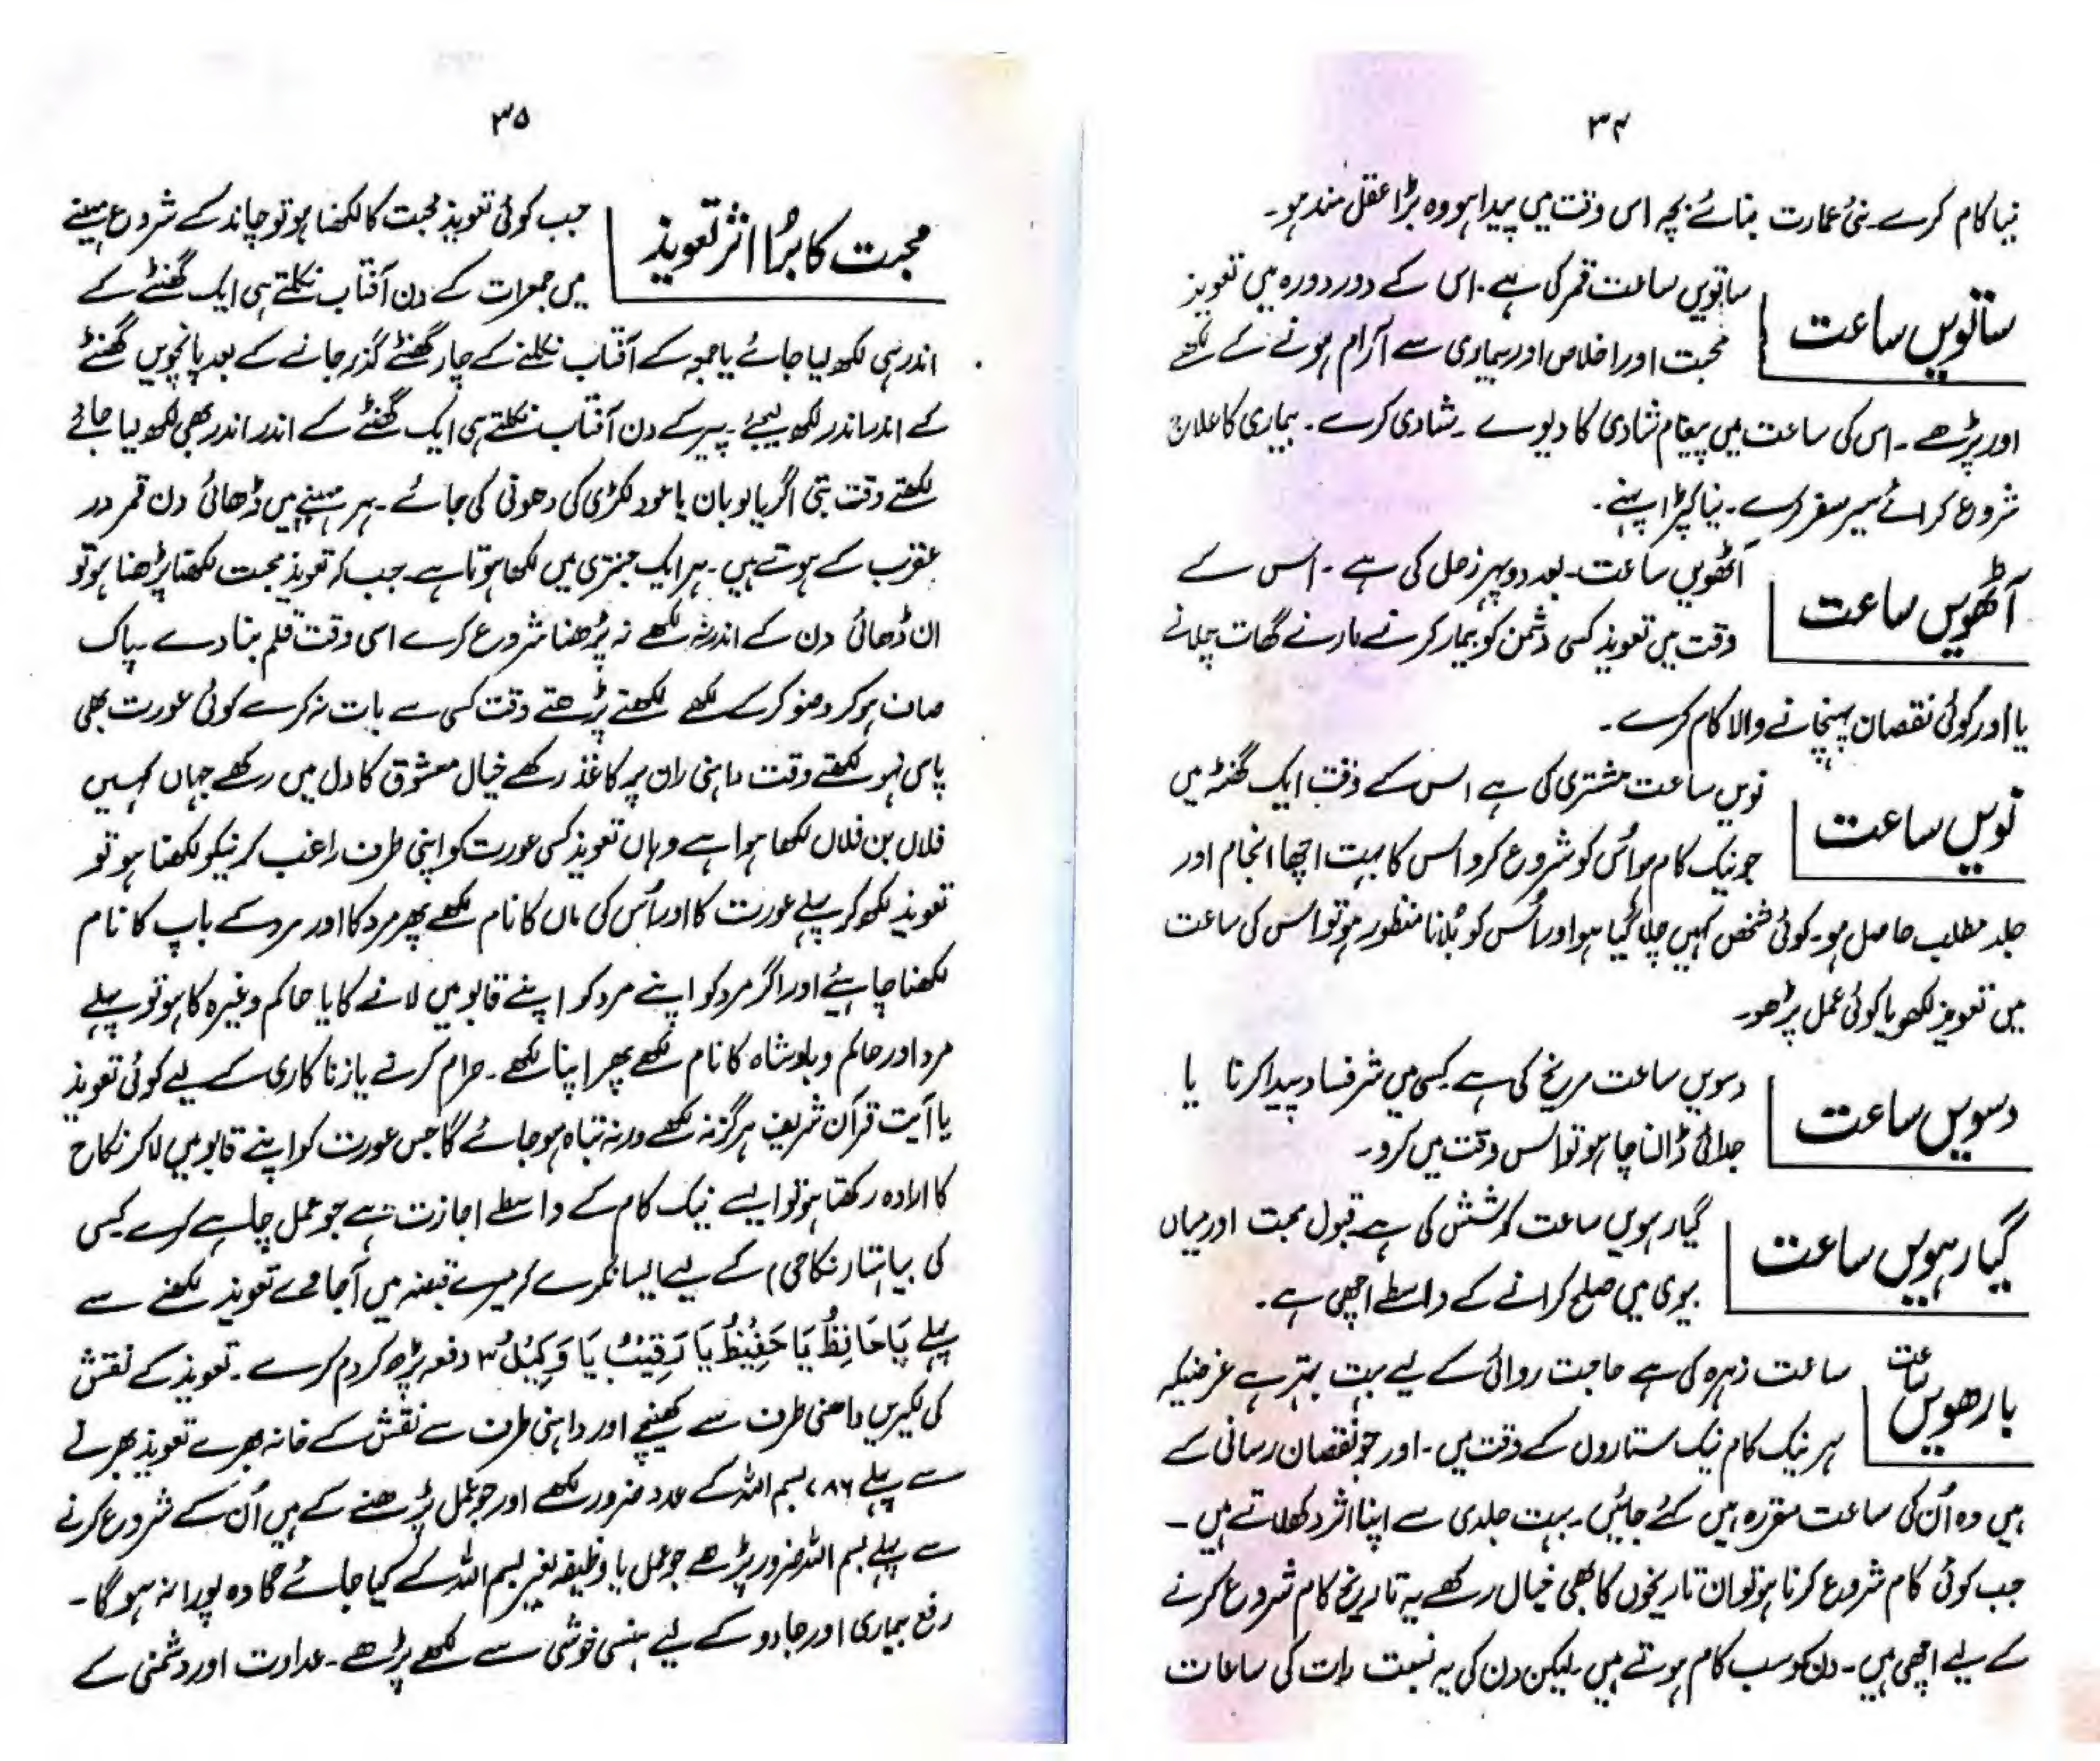 ۳۴
نیا کام کرے۔ نئی عمارت بنائے بچہ اس وقت میں پیدا ہو وہ بڑا عقل مند ہو۔
ساتویں ساعت
ساتویں ساعت قمر کی ہے۔ اس کے دور دورہ میں تعویذ
محبت اور اخلاص اور بیماری سے آرام ہونے کے لکھے
اور پڑھے۔ اس کی ساعت میں پیغام شادی کا دیوے۔ شادی کرے۔ بیماری کا علاج
شروع کرائے سیر سفر کرے۔ نیا کپڑا پہنے۔
آٹھویں ساعت
آٹھویں ساعت۔ بعد دوپہر زحل کی ہے۔ اس کے
وقت میں تعویذ کسی دشمن کو بیمار کرنے مارنے گھات چلانے
یا اور کوئی نقصان پہنچانے والا کام کرے۔
نویں ساعت
نویں ساعت مشتری کی ہے اس کے وقت ایک گھنٹہ میں
جو نیک کام ہو اُس کو شروع کرو اس کا بہت اچھا انجام اور
جلد مطلب حاصل ہو۔ کوئی شخص کہیں چلا گیا ہو اور اُس کو بُلانا منظور ہو تو اس کی ساعت
میں تعویذ لکھو یا کوئی عمل پڑھو۔
دسویں ساعت
دسویں ساعت مریخ کی ہے کسی میں شر فساد پیدا کرنا یا
جدائی ڈالنا چاہو تو اس وقت میں کرو۔
گیارہویں ساعت
گیارہویں ساعت کی ہے قبول محبت اور میاں
بیوی میں صلح کرانے کے واسطے اچھی ہے۔
بارھویں ساعت
ساعت زہرہ کی ہے حاجت روائی کے لیے بہت بہتر ہے غرضیکہ
ہر نیک کام نیک ستاروں کے وقت میں۔ اور جو نقصان رسانی کے
ہیں وہ اُن کی ساعت مقررہ میں کئے جائیں۔ بہت جلدی سے اپنا اثر دکھلاتے ہیں۔
جب کوئی کام شروع کرنا ہو تو ان تاریخوں کا بھی خیال رکھے یہ تاریخ کام شروع کرنے
کے لیے اچھی ہیں۔ دن کو سب کام ہوتے ہیں۔ لیکن دن کی بہ نسبت رات کی ساعات
۳۵
محبت کا بڑا اثر تعویذ
جب کوئی تعویذ محبت کا لکھنا ہو تو چاند کے شروع مہینے
میں جمعرات کے دن آفتاب نکلتے ہی ایک گھنٹے کے
اندر ہی لکھ لیا جائے یا جمعہ کے آفتاب نکلنے کے چار گھنٹے گذر جانے کے بعد پانچویں گھنٹے
کے اندر اندر لکھ لیجئے۔ پیر کے دن آفتاب نکلتے ہی ایک گھنٹے کے اندر اندر بھی لکھ لیا جائے
لکھتے وقت بتی اگر یا لوبان یا عود لکڑی کی دھونی کی جائے۔ ہر مہینے میں ڈھائی دن قمر در
عقرب کے ہوتے ہیں۔ ہر ایک جنتری میں لکھا ہوتا ہے۔ جب کہ تعویذ محبت لکھنا پڑھنا ہو تو
ان ڈھائی دن کے اندر نہ لکھے نہ پڑھنا شروع کرے اسی وقت قلم بنا دے۔ پاک
صاف ہو کر وضو کر کے لکھے لکھتے پڑھتے وقت کسی سے بات نہ کرے کوئی عورت بھی
پاس نہو لکھتے وقت داہنی ران پر کاغذ رکھے خیال معشوق کا دل میں رکھے جہاں کہیں
فلاں بن فلاں لکھا ہوا ہے وہاں تعویذ کسی عورت کو اپنی طرف راغب کرنیکو لکھنا ہو تو
تعویذ لکھ کر پہلے عورت کا اور اُس کی ماں کا نام لکھے پھر مرد کا اور مرد کے باپ کا نام
لکھنا چاہئے اور اگر مرد کو اپنے مرد کو اپنے قابو میں لانے کا یا حاکم وغیرہ کا ہو تو پہلے
مرد اور حاکم و بادشاہ کا نام لکھے پھر اپنا لکھے۔ حرام کرنے یا زنا کاری کے لیے کوئی تعویذ
یا آیت قرآن شریف ہرگز نہ لکھے ورنہ تباہ ہو جائے گا جس عورت کو اپنے قابو میں لا کر نکاح
کا ارادہ رکھتا ہو تو ایسے نیک کام کے واسطے اجازت ہے جو عمل چاہے کرے کسی
کی بیاہتا (نکاحی) کے لیے ایسا نکرے کہ میرے قبضہ میں آ جاوے تعویذ لکھنے سے
پہلے یَا حَافِظُ یَا حَفِیْظُ یَا رَقِیْبُ یَا وَکِیْلُ ۳ دفعہ پڑھ کر دم کرے۔ تعویذ کے نقش
کی لکیریں داھنی طرف سے کھینچے اور داہنی طرف سے نقش کے خانہ بھرے تعویذ بھرنے
سے پہلے ۷۸۶ بسم اللہ کے عدد ضرور لکھے اور جو عمل پڑھنے کے ہیں اُن کے شروع کرنے
سے پہلے بسم اللہ ضرور پڑھے جو عمل یا وظیفہ بغیر بسم اللہ کے کیا جائے گا وہ پورا نہ ہو گا۔
رفع بیماری اور جادو کے لیے ہنسی خوشی سے لکھے پڑھے۔ عداوت اور دشمنی کے